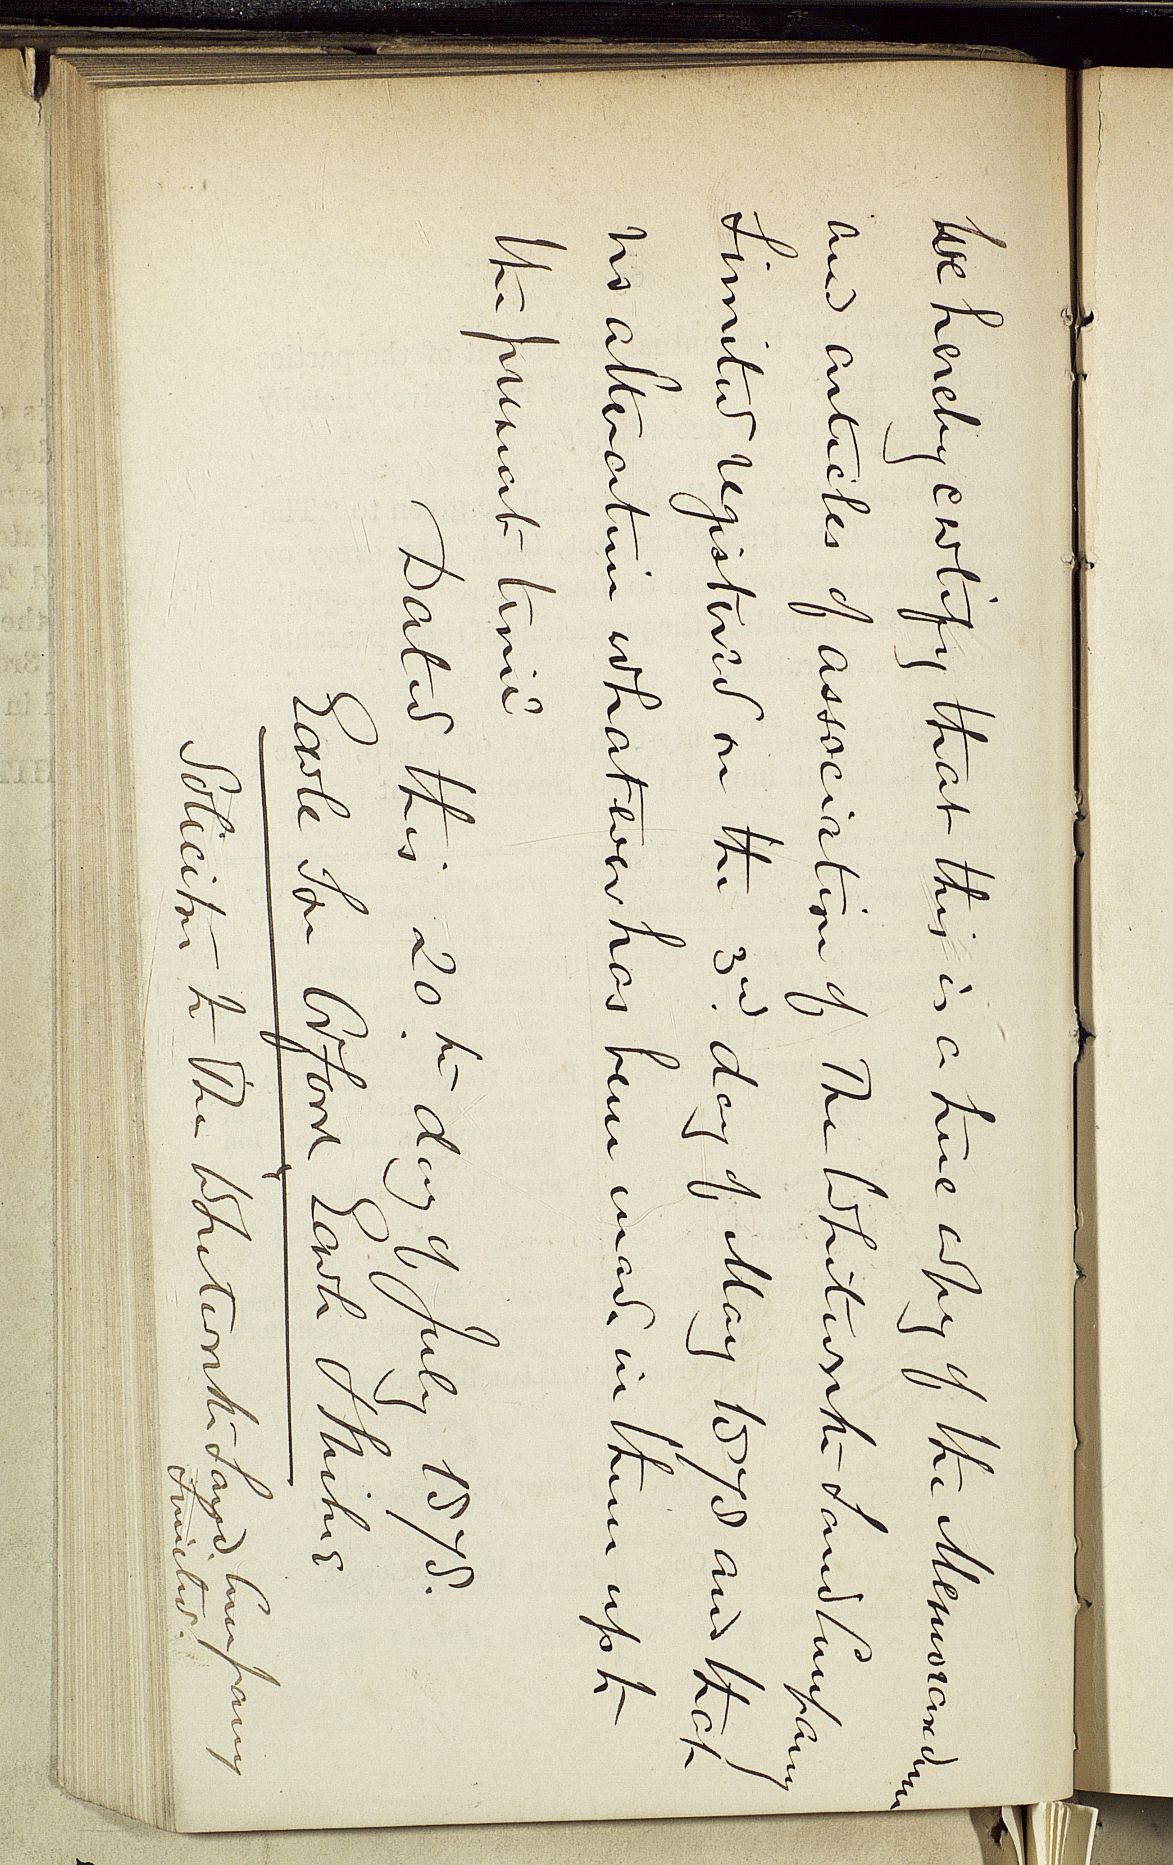 We hereby certify that this is a true copy of the Memorandum
and articles of association of The Whiteinch Land Company
Limited registered on the 3rd. day of May 1878 and that
no alteration whatever has been made in them up to
the present time
Dated this 20.th day of July 1878.
Earle Son Orford Earle & Milne
Solicitors to The Whiteinch Land. Company
Limited.